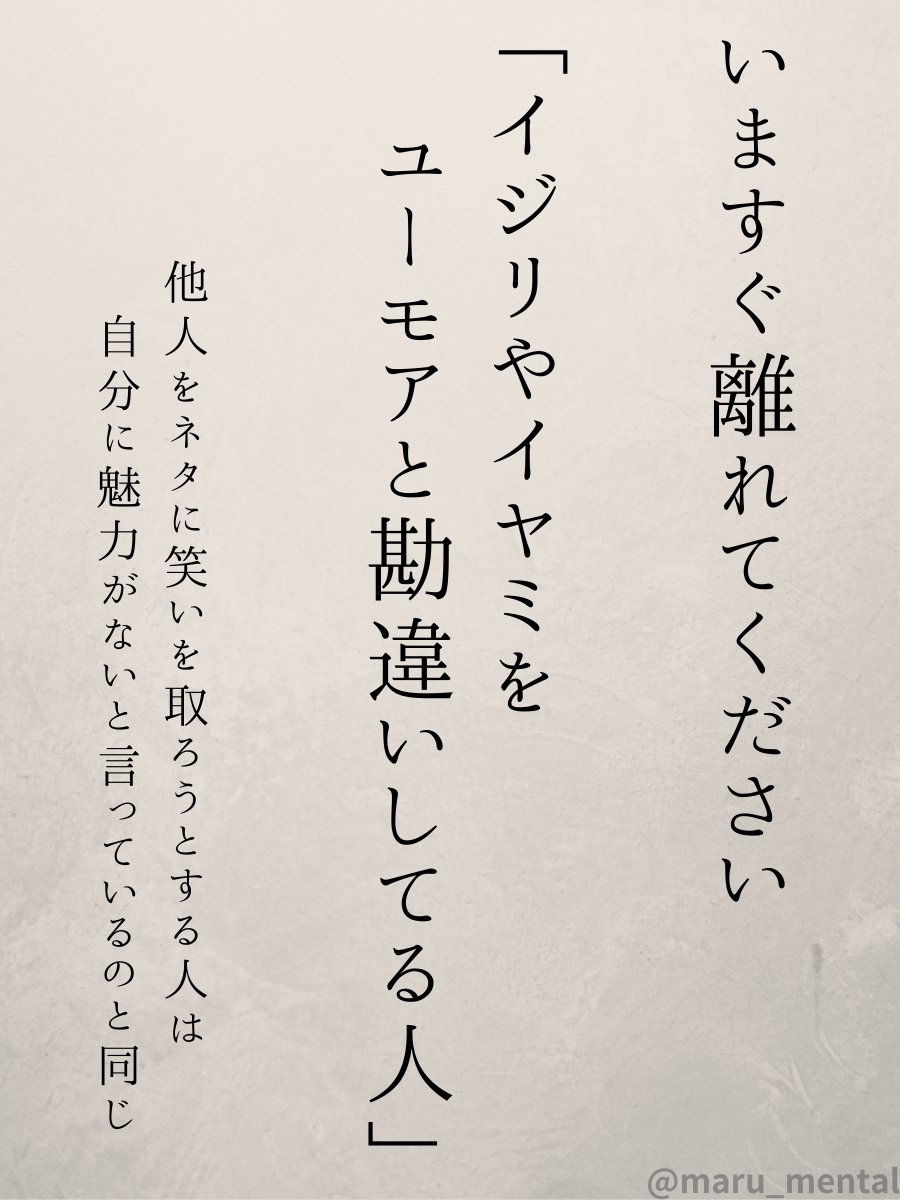 いますぐ離れてください
「イジリやイヤミを
ユーモアと勘違いしてる人」
他人をネタに笑いを取ろうとする人は
自分に魅力がないと言っているのと同じ
@maru_mental